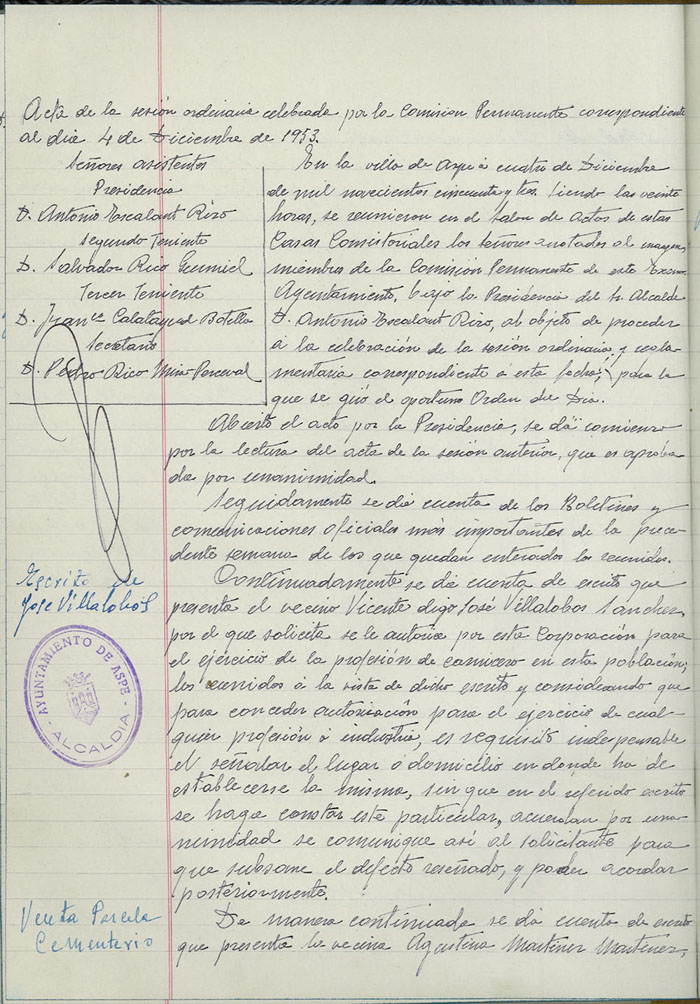 Acta de la sesión ordinaria celebrada por la Comision Permanente correspondiente
al dia 4 de Diciembre de 1953.
Señores asistentos
Presidencia
D. Antonio Escalant Rizo
Segundo Teniente
D. Salvador Rico Gumiel
Tercer Teniente
D. Juan Calatayud Botella
Secretario
D. Pedro Rico Mira-Perceval
En la villa de Aspe a cuatro de Diciembre
de mil novecientos cincuenta y tres. Siendo las veinte
horas, se reunieron en el Salon de Actos de estas
Casas Consistoriales los señores anotados al margen,
miembros de la Comisión Permanente de este Excmo.
Ayuntamiento, bajo la Presidencia del Sr. Alcalde
D. Antonio Escalant Rizo, al objeto de proceder
á la celebración de la sesión ordinaria y regla-
mentaria correspondiente á esta fecha, para la
que se giró el oportuno Orden del Dia.
Abierto el acto por la Presidencia, se dá comienzo
por la lectura del acta de la sesión anterior, que es aproba-
da por unanimidad.
Seguidamente se dá cuenta de los Boletines y
comunicaciones oficiales más importantes de la prece-
dente semana de los que quedan enterados los reunidos.
Escrito de
Jose Villalobos
Continuadamente se dá cuenta de escrito que
presenta el vecino Vicente digo José Villalobos Sánchez,
por el que solicita se le autorice por esta Corporación para
el ejercicio de la profesión de carnicero en esta población;
los reunidos á la vista de dicho escrito y considerando que
para conceder autorización para el ejercicio de cual-
quier profesión ó industria, es requisito indispensable
el señalar el lugar ó domicilio en donde ha de
establecerse la misma, sin que en el referido escrito
se haga constar este particular, acuerdan por una-
nimidad se comunique así al solicitante para
que subsane el defecto reseñado, y poder acordar
posteriormente.
AYUNTAMIENTO DE ASPE
ALCALDIA
Venta Parcela
Cementerio
De manera continuada se dá cuenta de escrito
que presenta la vecina Agustina Martinez Martinez,